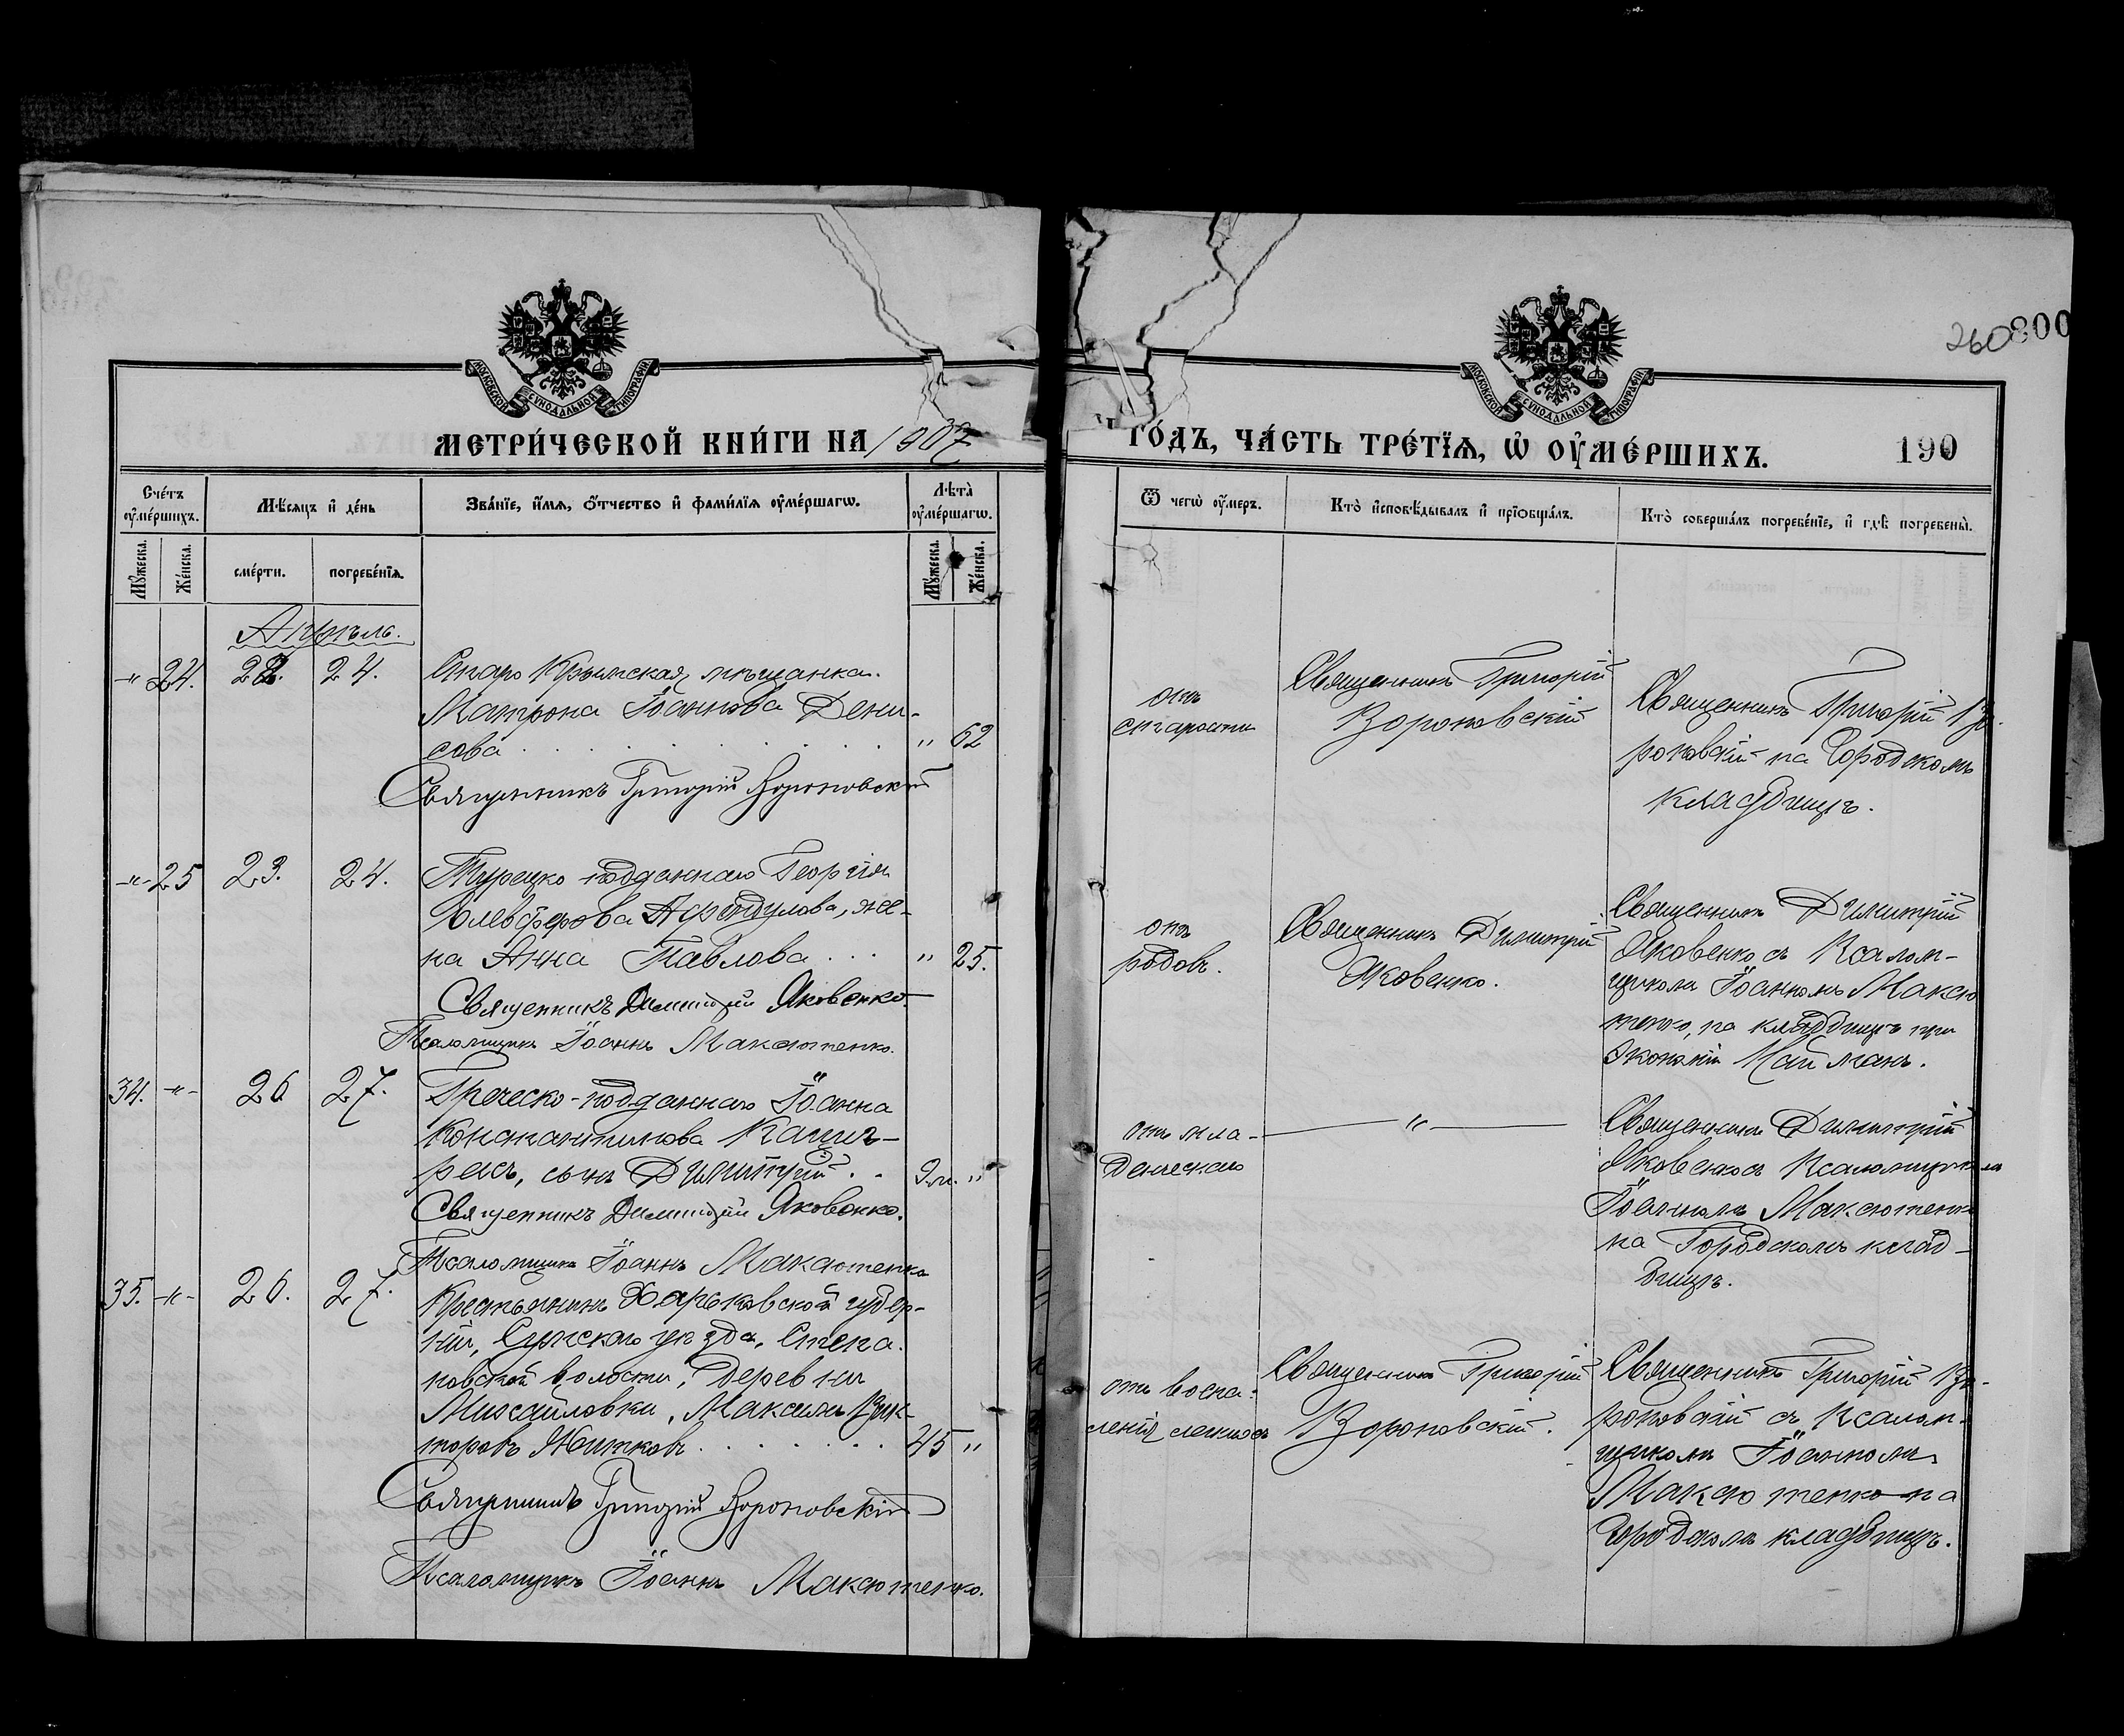 260 800
МОСКОВСКОЙ СѴНОДАЛЬНОЙ ТИПОГРАФІИ
МОСКОВСКОЙ СѴНОДАЛЬНОЙ ТИПОГРАФІИ
МЕТРИ́ЧЕСКОЙ КНИ́ГИ НА 1907
ГО́ДЪ, ЧА́СТЬ ТРЕ́ТЇѦ, Ѡ҆ ОУ҆МЕ́РШИХЪ.
190
Сче́тъ оу҆ме́ршихъ.
Мѣ́сяцъ и҆ де́нь
Зва́нїе, и҆́мѧ, о҆́тчество и҆ фами́лїѧ оу҆ме́ршагѡ.
Лѣта̀ оу҆ме́ршагѡ.
Ѿ чегѡ̀ оу҆́меръ.
Кто̀ и҆сповѣ́дывалъ и҆ прїѡбща́лъ.
Кто̀ соверша́лъ погребе́нїе, и҆ гдѣ̀ погребены̀.
Мꙋ́жеска.
Же́нска.
сме́рти.
погребе́нїѧ.
Мꙋ́жеска.
Же́нска.
Апрѣль.
-"- 24. 22. 24.
Старо Крымская мѣщанка
Матрона Іоаннова Дени-
сова . . . . . . . . " 62
Священникъ Григорій Вороновскій
отъ
старости
Священникъ Григорій
Вороновскій
Священникъ Григорій Во-
роновскій на Городскомъ
кладбищѣ.
-"- 25 23. 24.
Турецко-подданнаго Георгія
Елевферова , же-
на Анна Павлова . . . " 25.
Священникъ Димитрій Яковенко
Псаломщикъ Іоаннъ Максютенко.
отъ
родовъ.
Священникъ Димитрій
Яковенко.
Священникъ Димитрій
Яковенко съ Псалом-
щикомъ Іоанномъ Максю
тенко, на кладбищѣ при
Экономіи Найманъ.
34. -"- 26 27.
Греческо-подданнаго Іоанна
Константинова
, сынъ Димитрій . . 9 м. "
Священникъ Димитрій Яковенко.
Псаломщикъ Іоаннъ Максютенко
отъ мла-
денческаго
-"-
Священникъ Димитрій
Яковенко съ Псаломщикомъ
Іоанномъ Максютенко
на Городскомъ клад-
бищѣ.
35. -"- 26. 27.
Крестьянинъ Харьковской губер-
ніи, Сумскаго уѣзда, Степа-
новской волости, деревни
Михайловки, Максимъ Вик-
торовъ . . . . . . 45 "
Священникъ Григорій Вороновскій
Псаломщикъ Іоаннъ Максютенко.
отъ воспа-
ленія легкихъ
Священникъ Григорій
Вороновскій.
Священникъ Григорій Во-
роновскій съ Псалом-
щикомъ Іоанномъ
Максютенко на
Городскомъ кладбищѣ.